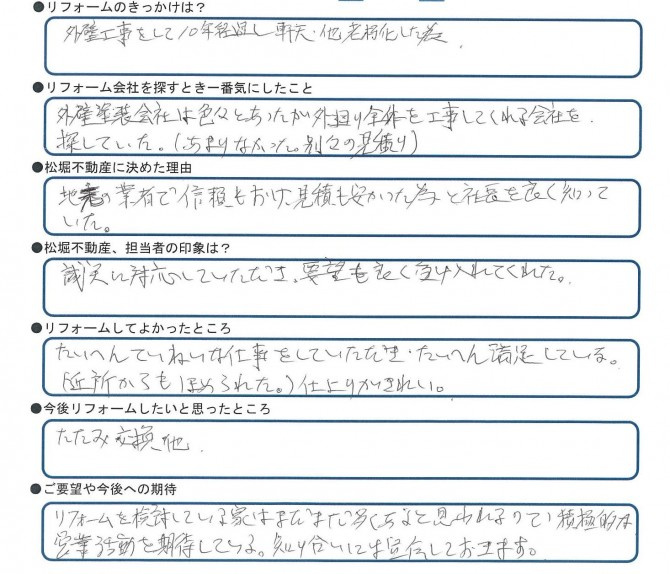 ●リフォームのきっかけは？
外壁工事をして10年経過し軒天・他老朽化した為
●リフォーム会社を探すとき一番気にしたこと
外壁塗装会社は色々とあったが外回り全体を工事してくれる会社を
探していた。(あまりなかった。別々の見積り)
●松堀不動産に決めた理由
地元の業者で信頼もおけ、見積も安かった為と社長を良く知って
いた。
●松堀不動産、担当者の印象は？
誠実に対応していただき、要望も良く受け入れてくれた。
●リフォームしてよかったところ
たいへんていねいな仕事をしていただき・たいへん満足している。
(近所からもほめられた。)仕上りがきれい。
●今後リフォームしたいと思ったところ
たたみ交換他.
●ご要望や今後への期待
リフォームを検討している家はまだまだ多くあると思われるので積極的な
営業活動を期待している。知り合いには宣伝しておきます。